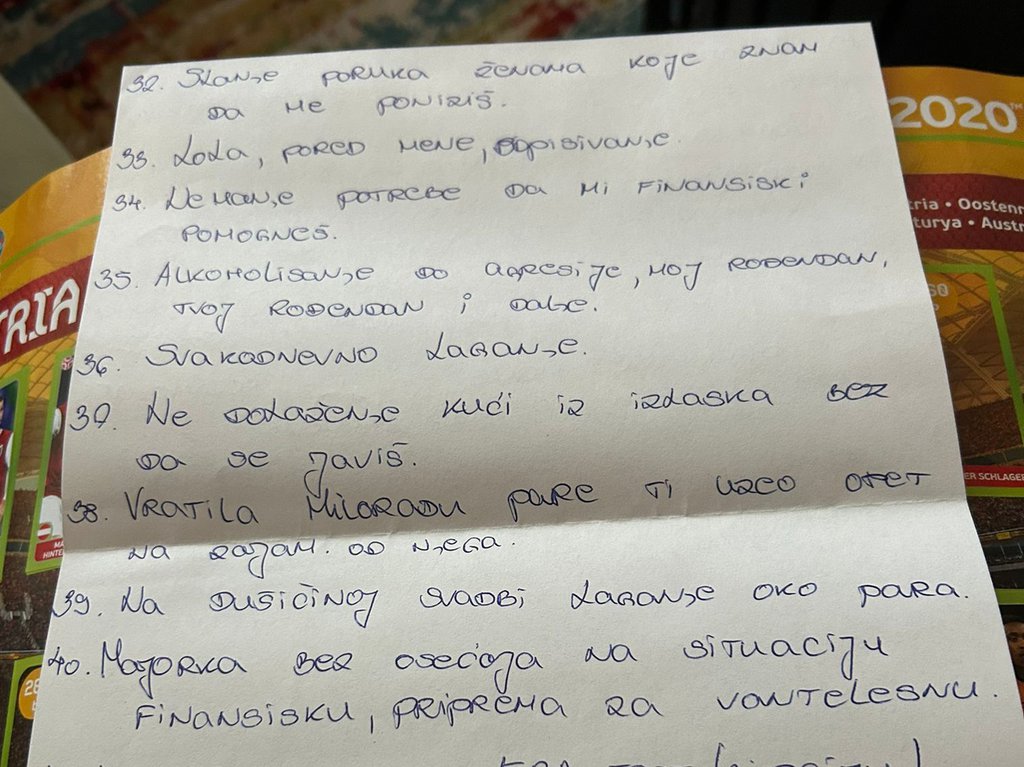 32. Slanje poruka ženama koje znam
da me poniziš.
33. Loša, pored mene, dopisivanje.
34. Nemanje potrebe da mi finansiski
pomogneš.
35. Alkoholisanje do agresije, moj rođendan,
tvoj rođendan i dalje.
36. Svakodnevno laganje.
37. Ne dolaženje kući iz izdaska bez
da se javiš.
38. Vratila Miloradu pare ti uzeo opet
na zajam. od njega.
39. Na Dušičinoj svadbi laganje oko para.
40. Majorka bez osećaja na situaciju
finansisku, priprema za vantelesnu.
2020
tria • Oostenr
turya • Austr
TRIA
ER SCHLAGE
HINTE
28